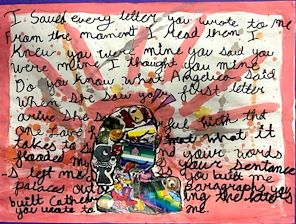 I Saved every letter you wrote to me
From the moment I read them I
Knew you were mine you said you
were mine I thought you mine
Do you know what Angelica said
When she saw your first letter
arrive she s
one have ful with the
takes to what it
flooded my nd your words
s left me your sentence
palaces out you built me
built Cathedr paragraphs you
you wrote to ing the letters
me.